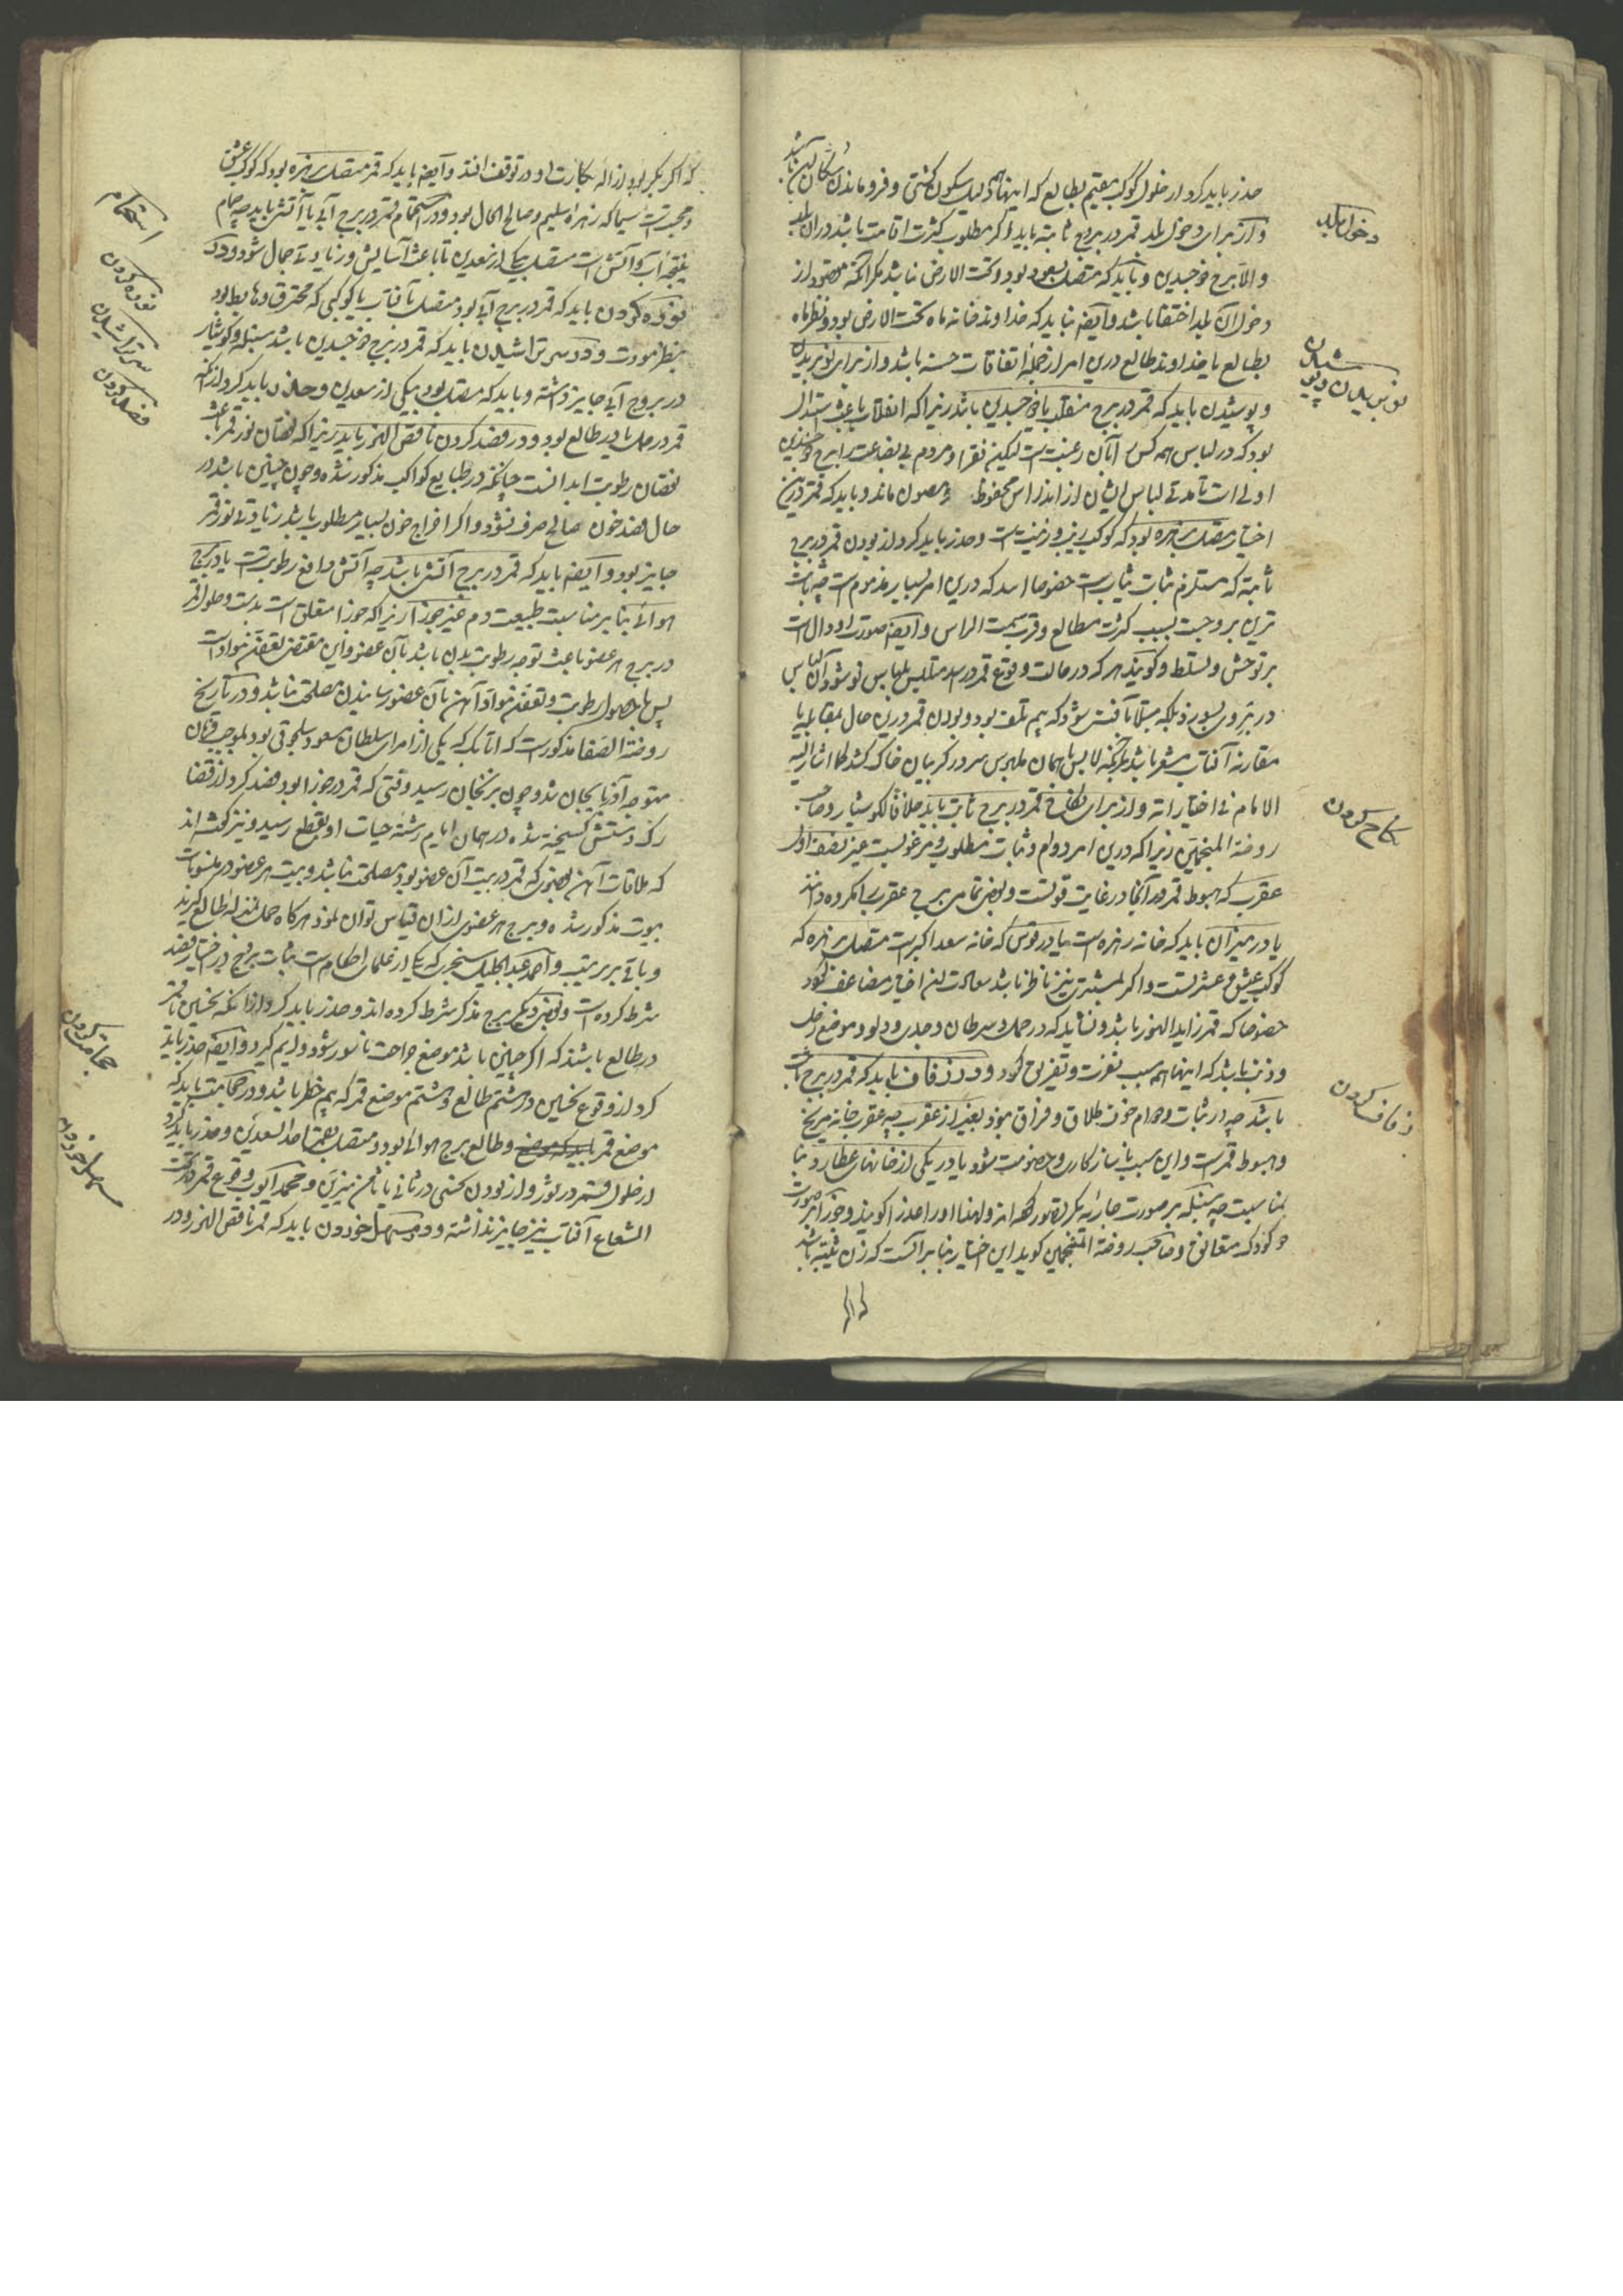 حذر باید کرد از حلول کوکب مقیم بطالع که اینها همه دلیل سکون کشتی و فروماندن
و از برای دخول بلد قمر در بروج ثابته باید اگر مطلوب کثرت اقامت باشد در آن بلد
دخول بلد
و الا برج ذو جسدین و باید که متصل بسعود بود و تحت الارض نباشد مگر آنکه مقصود از
دخول آن بلد اختفا باشد و ایضا نباید که خداوند خانه ماه تحت الارض بود و نظر ماه
بطالع یا خداوند طالع درین امر از جمله اتفاقات حسنه باشد و از برای نو بریدن
نو بریدن و پوشیدن
و پوشیدن باید که قمر در برج منقلب یا ذو جسدین باشد زیرا که انقلاب باعث استبدال
بود که در لباس همه کس را بآن رغبت است لیکن فقرا و مردم بی بضاعت را برج ذو جسدین
اولی است تا مدتی لباس ایشان از اندراس محفوظ و مصون ماند و باید که قمر درین
اختیار متصل بزهره بود که کوکب زیب و زینت است و حذر باید کرد از بودن قمر در برج
ثابته که مستلزم ثبات ثیابست خصوصا اسد که درین امر بسیار مذموم است چه ثابت
ترین بروجست بسبب کثرت مطالع و قرب سمت الراس و ایضا صورت او دال است
بر توحش و تسلط و گویند هر که در حالت وقوع قمر در اسد متلبس بلباس نو شود آن لباس
در بر وی بسوزد بلکه مبتلا بآفتی شود که بیم تلف بود و بودن قمر درین حال بمقابله یا
مقارنه آفتاب مشعر باشد بر آنکه لابس با همان ملبوس سر در گریبان خاک کشد کما اشار الیه
الامام فی اختیاراته و از برای نکاح قمر در برج ثابت باید خلافا لکوشیار و صاحب
نکاح کردن
روضة المنجمین زیرا که درین امر دوام و ثبات مطلوب و مرغوبست غیر نصف اول
عقرب که هبوط قمر در آنجا در غایت قوتست و بعضی تمامی برج عقرب را مکروه دانند
یا در میزان باید که خانه زهره است یا در قوس که خانه سعد اکبرست متصل بزهره که
کوکب عیش و عشرتست و اگر مشتری نیز ناظر باشد سعادت این اختیار مضاعف شود
خصوصا که قمر زاید النور باشد و نشاید که در حمل و سرطان و جدی و دلو و موضع زحل
و ذنب باشد که اینها همه سبب نفرت و تفریق گردد و در زفاف باید که قمر در برج ثابت
زفاف کردن
باشد چه از ثبات و دوام خوف طلاق و فراق نبود بغیر از عقرب چه عقرب خانه مریخ
و هبوط قمرست و این سبب ناسازگاری و خصومت شود یا در یکی از خانهای عطارد بنا
بمناسبت چه سنبله بر صورت جاریه بکر تصور کرده اند و لهذا او را عذرا گویند و جوزا بر صورت
دو کودک متعانق و صاحب روضة المنجمین گوید این اختیار بنا بر آنست که زن ثیبه باشد
که اگر
که اگر بکر بود ازاله بکارت او در توقف افتد و ایضا باید که قمر متصل بزهره بود که کوکب عشق
و محبت است سیما که زهره سلیم و صالح الحال بود و در استحمام قمر در برج آبی یا آتشی باید چه حمام
استحمام
نتیجه آب و آتش است متصل بیکی از سعدین تا باعث آسایش و زیادتی جمال شود و در
نوره کردن باید که قمر در برج آبی بود متصل بآفتاب یا کوکبی که محترق و هابط بود
نوره کردن
بنظر مودت و در سر تراشیدن باید که قمر در برج ذو جسدین باشد سنبله و کوشیار
سر تراشیدن
در بروج آبی جایز داشته و باید که متصل بود بیکی از سعدین و حذر باید کرد از آنکه
قمر در حمل یا در طالع بود و در فصد کردن ناقص النور باید زیرا که نقصان نور قمر باعث
فصد کردن
نقصان رطوبت ابدانست چنانکه در طبایع کواکب مذکور شد و چون چنین باشد در
حال فصد خون صالح صرف نشود و اگر اخراج خون بسیار مطلوب باشد زیادتی نور قمر
جایز بود و ایضا باید که قمر در برج آتشی باشد چه آتش دافع رطوبتست یا در برج
هوائی بنا بر مناسبت طبیعت دم غیر جوزا زیرا که جوزا متعلق است بدست و حلول قمر
در برج هر عضو باعث توجه رطوبت بدن باشد بآن عضو و این مقتضی تعفن مواد است
پس با حصول رطوبت و تعفن مواد آهن بآن عضو رسانیدن مصلحت نباشد و در تاریخ
روضة الصفا مذکورست که اتابک که یکی از امرای سلطان مسعود سلجوقی بود بموجب فرمان
متوجه آذربایجان شد و چون بزنجان رسید وقتی که قمر در جوزا بود فصد کرد از قضا
رگ دستش گسیخته شده در همان ایام رشته حیات او بقطع رسید و نیز گفته اند
که ملاقات آهن بعضوی که قمر در بیت آن عضو بود مصلحت نباشد و بیت هر عضو در منسوبات
بیوت مذکور شده و برج هر عضوی از آن قیاس توان نمود هرگاه حمل بمنزله طالع گیرند
و باقی بر ترتیب و احمد عبدالجلیل سجزی که یکی از علمای احکام است ثبات برج در اختیار فصد
شرط کرده است و بعضی دیگر برج مذکر شرط کرده اند و حذر باید کرد از آنکه نحسین با قمر
در طالع باشند که اگر چنین باشد موضع جراحت ناسور شود و ریم گیرد و ایضا حذر باید
کرد از وقوع نحسین در هشتم طالع و هشتم موضع قمر که بیم خطر باشد و در حجامت باید که
حجامت کردن
موضع قمر و طالع برج هوائی بود و متصل باحد السعدین و حذر باید کرد
از حلول قمر در ثور و از بودن نحسی در ثانی یا ثامن نیرین و محمد ایوب وقوع قمر در تحت
الشعاع آفتاب نیز جایز نداشته و در مسهل خوردن باید که قمر ناقص النور و در
مسهل خوردن